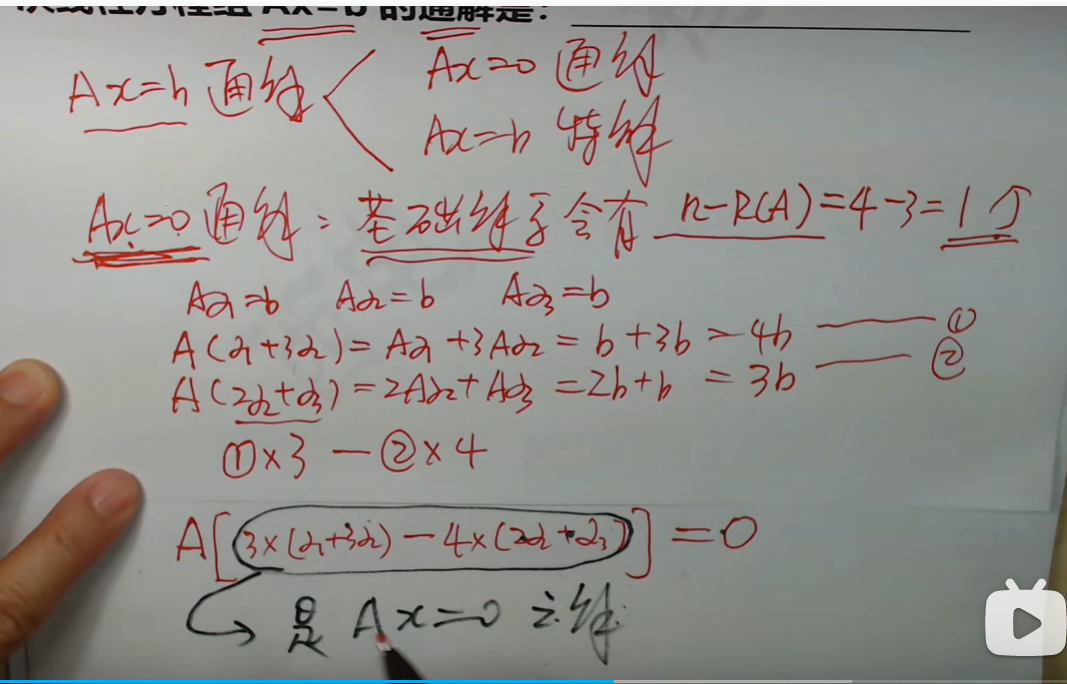 次线性方程组 Ax=b 的通解是:
Ax=b 通解 Ax=0 通解
Ax=b 特解
Ax=0 通解: 基础解系含有 n-R(A)=4-3=1个
Aα₁=b Aα₂=b Aα₃=b
A(α₁+3α₂)=Aα₁+3Aα₂=b+3b=4b ①
A(2α₂+α₃)=2Aα₂+Aα₃=2b+b=3b ②
①×3-②×4
A[3×(α₁+3α₂)-4×(2α₂+α₃)]=0
是 Ax=0 之解.